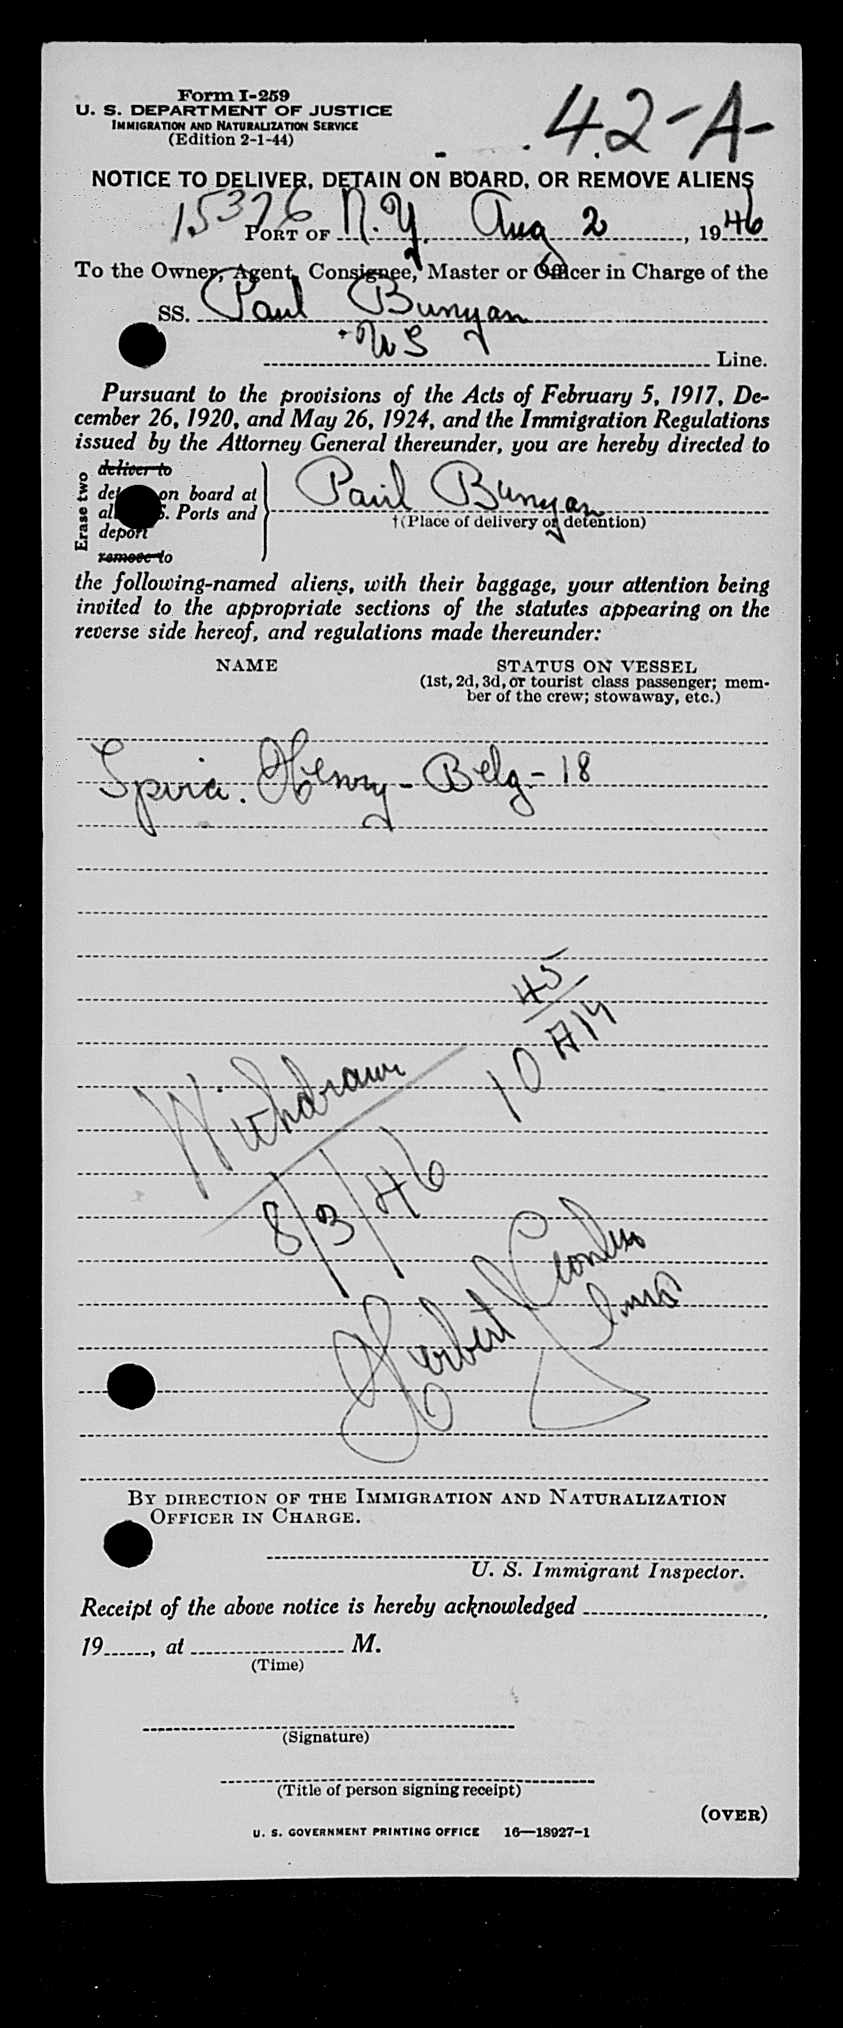 Form I-259
U. S. DEPARTMENT OF JUSTICE
IMMIGRATION AND NATURALIZATION SERVICE
(Edition 2-1-44)
42-A-
NOTICE TO DELIVER, DETAIN ON BOARD, OR REMOVE ALIENS
15376
PORT OF N.Y. Aug 2, 1946
To the Owner, Agent, Consignee, Master or Officer in Charge of the
SS. Paul Bunyan
WS
Line.
Pursuant to the provisions of the Acts of February 5, 1917, De-
cember 26, 1920, and May 26, 1924, and the Immigration Regulations
issued by the Attorney General thereunder, you are hereby directed to
Erase two
deliver to
on board at
Ports and
deport
remove to
Paul Bunyan
†(Place of delivery or detention)
the following-named aliens, with their baggage, your attention being
invited to the appropriate sections of the statutes appearing on the
reverse side hereof, and regulations made thereunder:
NAME
STATUS ON VESSEL
(1st, 2d, 3d, or tourist class passenger; mem-
ber of the crew; stowaway, etc.)
Spira. Henry - Belg - 18
45
10 AM
Withdrawn
8/3/46
Herbert
BY DIRECTION OF THE IMMIGRATION AND NATURALIZATION
OFFICER IN CHARGE.
U. S. Immigrant Inspector.
Receipt of the above notice is hereby acknowledged
19, at M.
(Time)
(Signature)
(Title of person signing receipt)
(OVER)
U. S. GOVERNMENT PRINTING OFFICE 16—18927-1